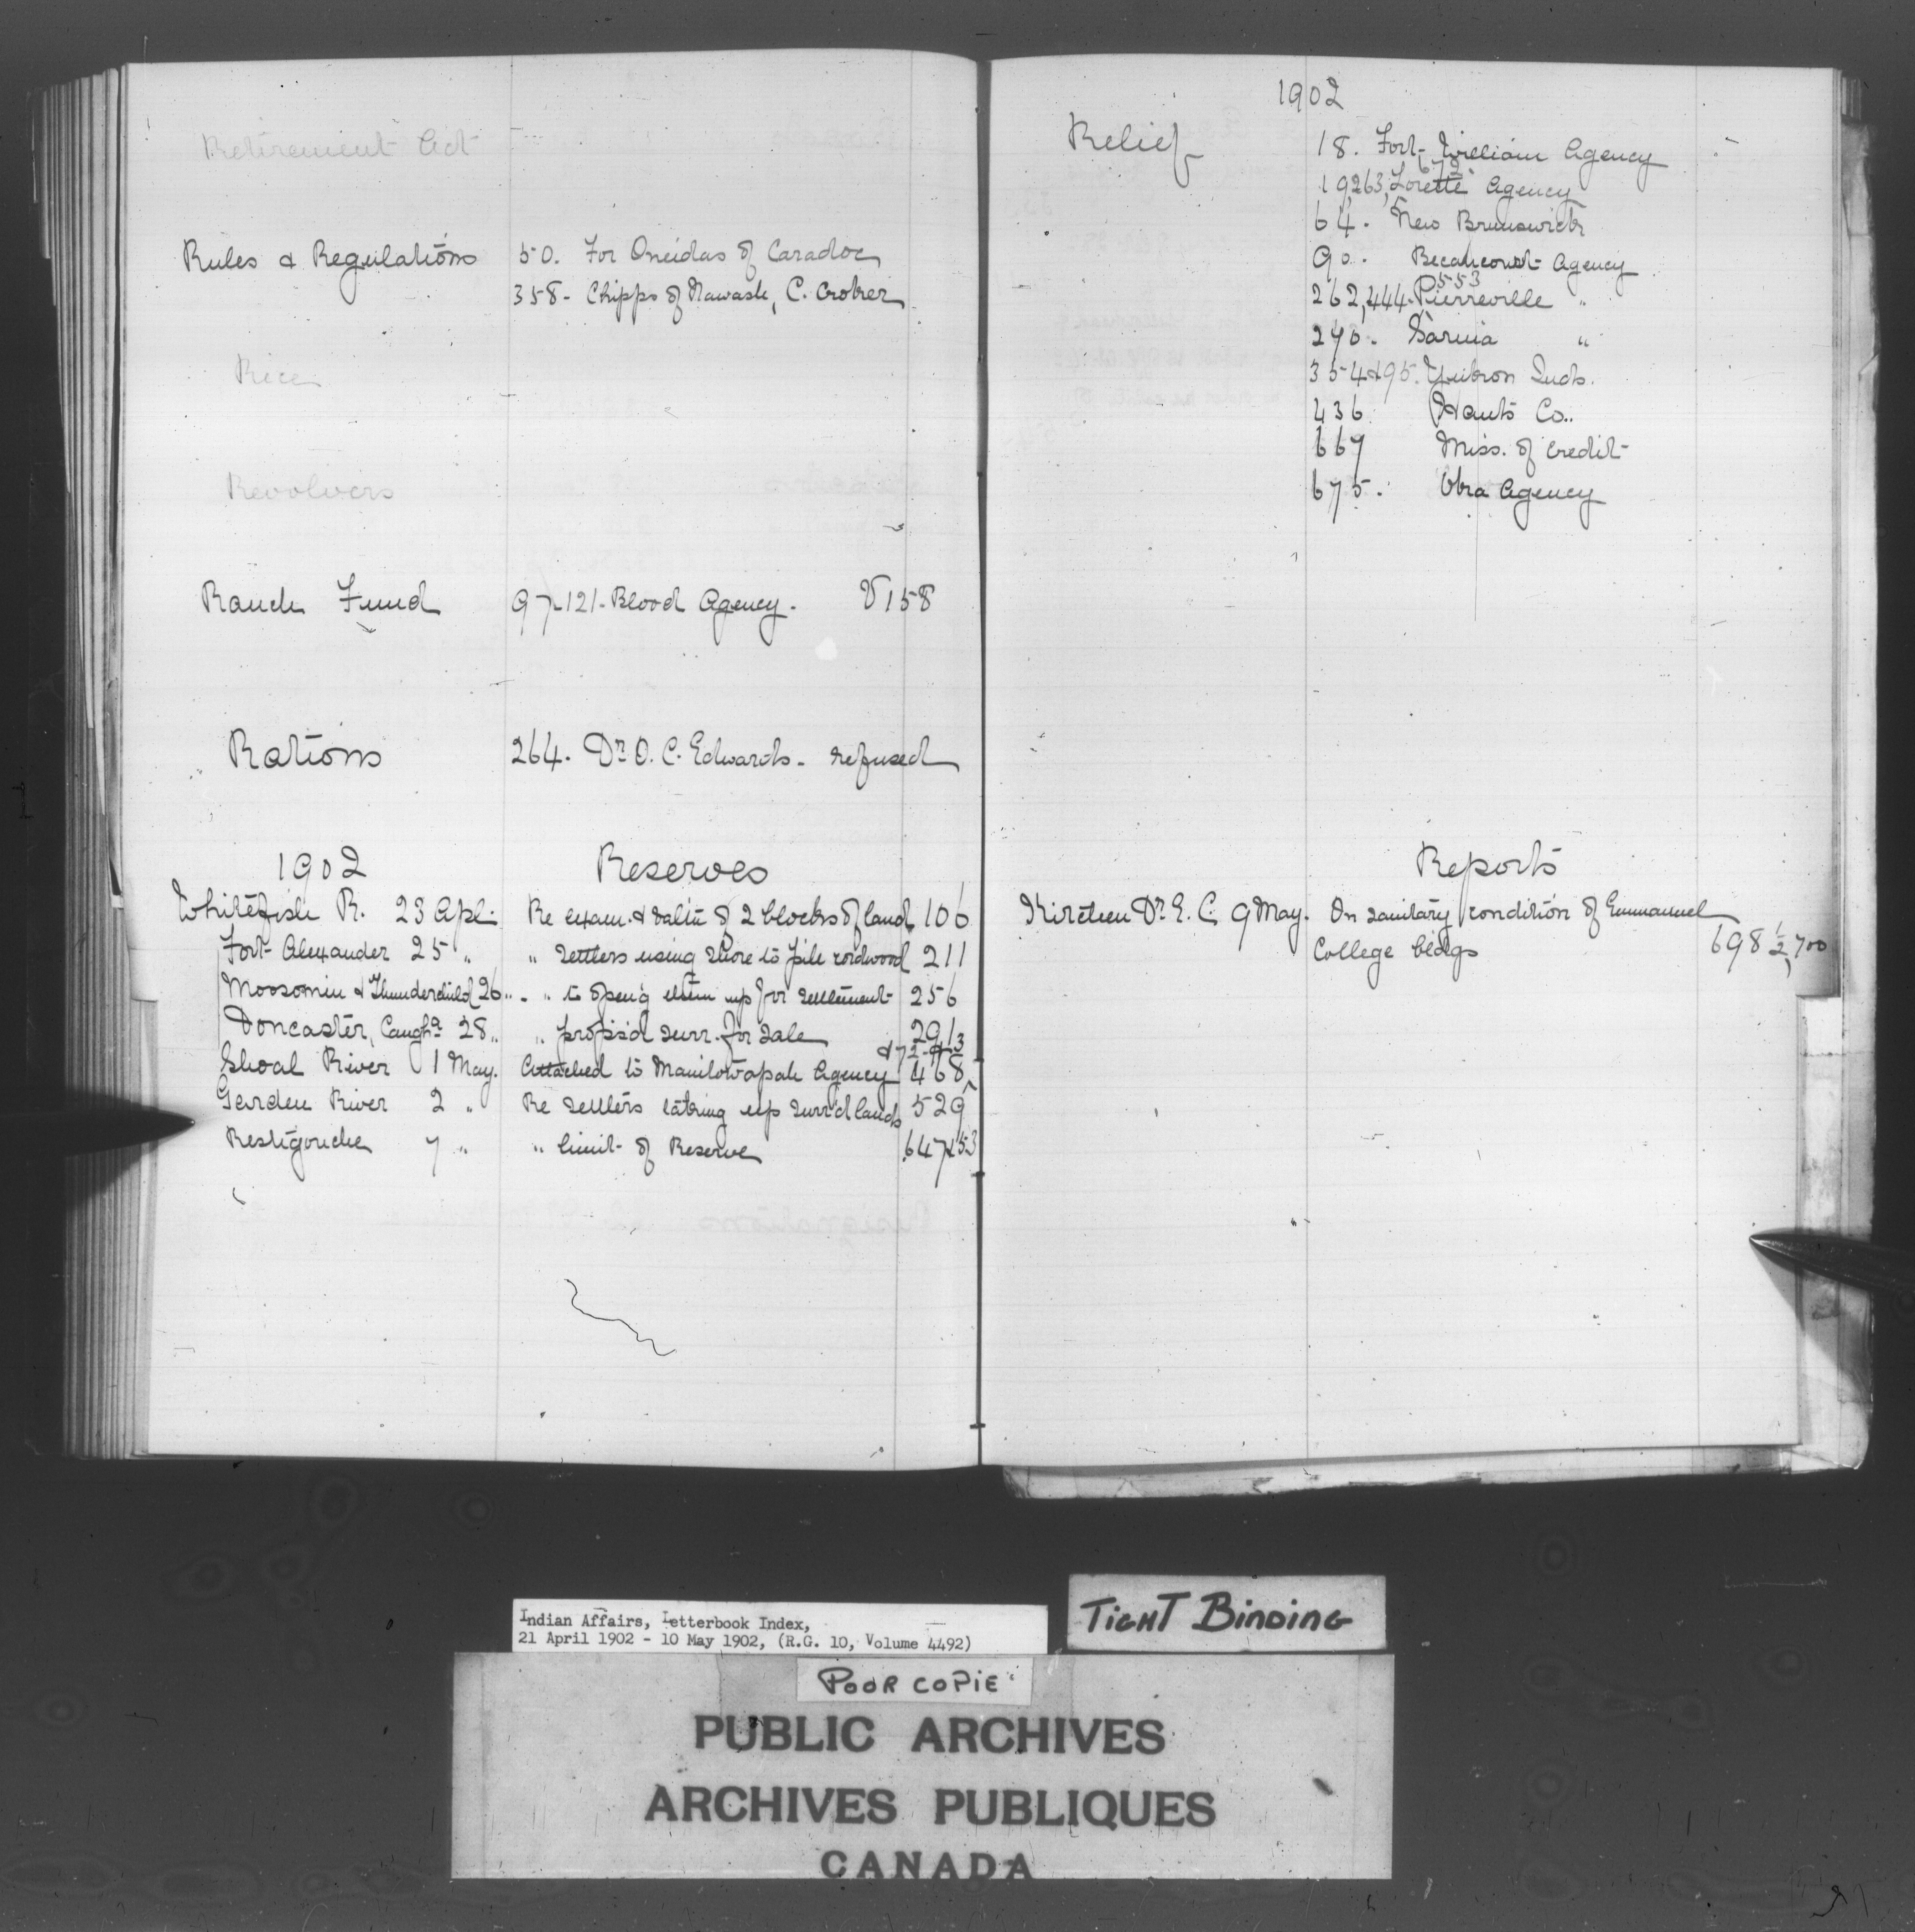 Retirement Act
Rules & Regulations 50. For Oneidas of Caradoc
358- Chipps of Nawash, C. Croker
Rice
Revolvers
Ranch Fund 97-121- Blood Agency. V158
Rations 264. Dr. O. C. Edwards - refused
1902 Reserves
Whitefish R. 23 Apl. Re exam. & value of 2 blocks of land 106
Fort Alexander 25 " " Settlers using shore to pile cordwood 211
Moosomin & Thunderchild 26 " " to open'g them up for settlement 256
Doncaster, Caugha. 28 " " propos'd surr. for sale 291
Shoal River 1 May. Attached to Manitowapah Agency 468
Garden River 2 " Re settlers taking up surr'd lands 529
Restigouche 7 " " limit of Reserve 647&53
1902
Relief 18. Fort William Agency
672
19,263, Lorette Agency
64. New Brunswick
90. Becancourt Agency
553
262,444. Pierreville "
270. Sarnia "
354&95. Yukon Inds.
436. Hants Co..
667 Miss. of Credit
675. Agency
Reports
Dr. E. C. 9 May. On sanitary condition of Emmanuel
College bldgs 698 1/2, 700
Indian Affairs, Letterbook Index,
21 April 1902 - 10 May 1902, (R.G. 10, Volume 4492)
TIGHT BINDING
POOR COPIE
PUBLIC ARCHIVES
ARCHIVES PUBLIQUES
CANADA